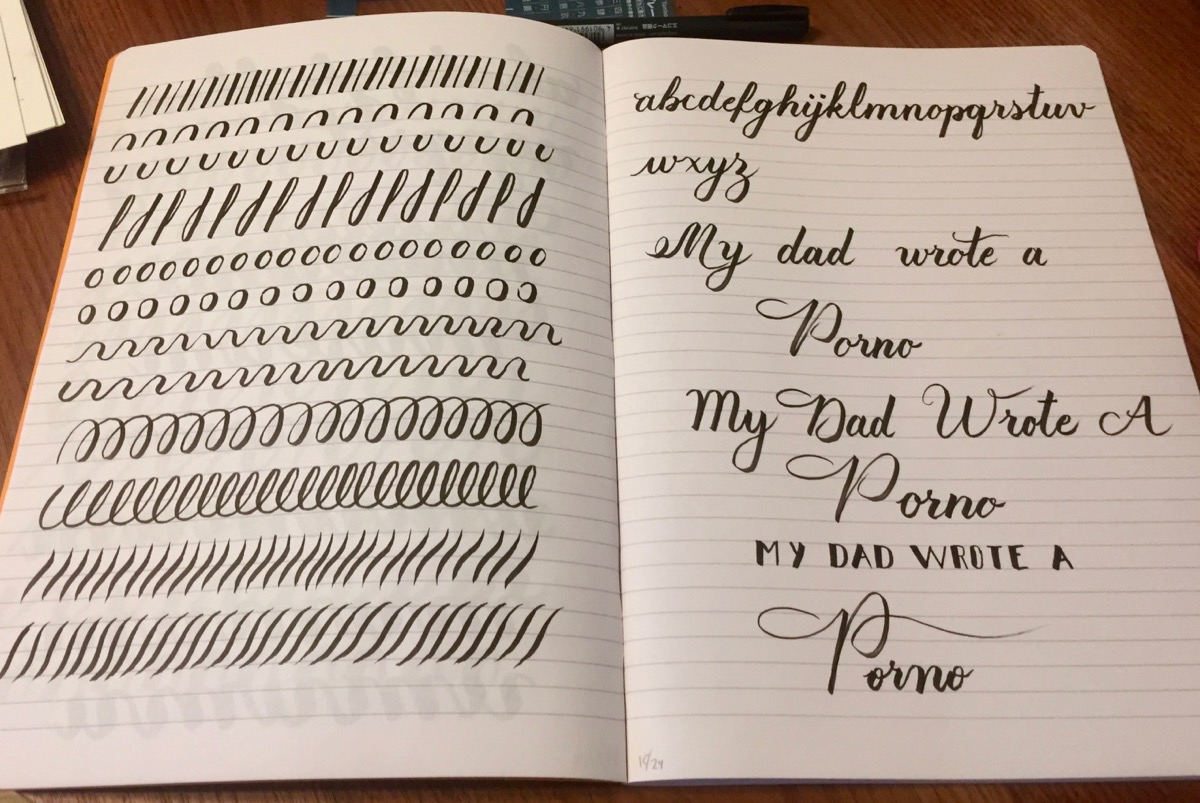 abcdefghijklmnopqrstuv
wxyz
My dad wrote a
Porno
My Dad Wrote A
Porno
MY DAD WROTE A
Porno
10/24